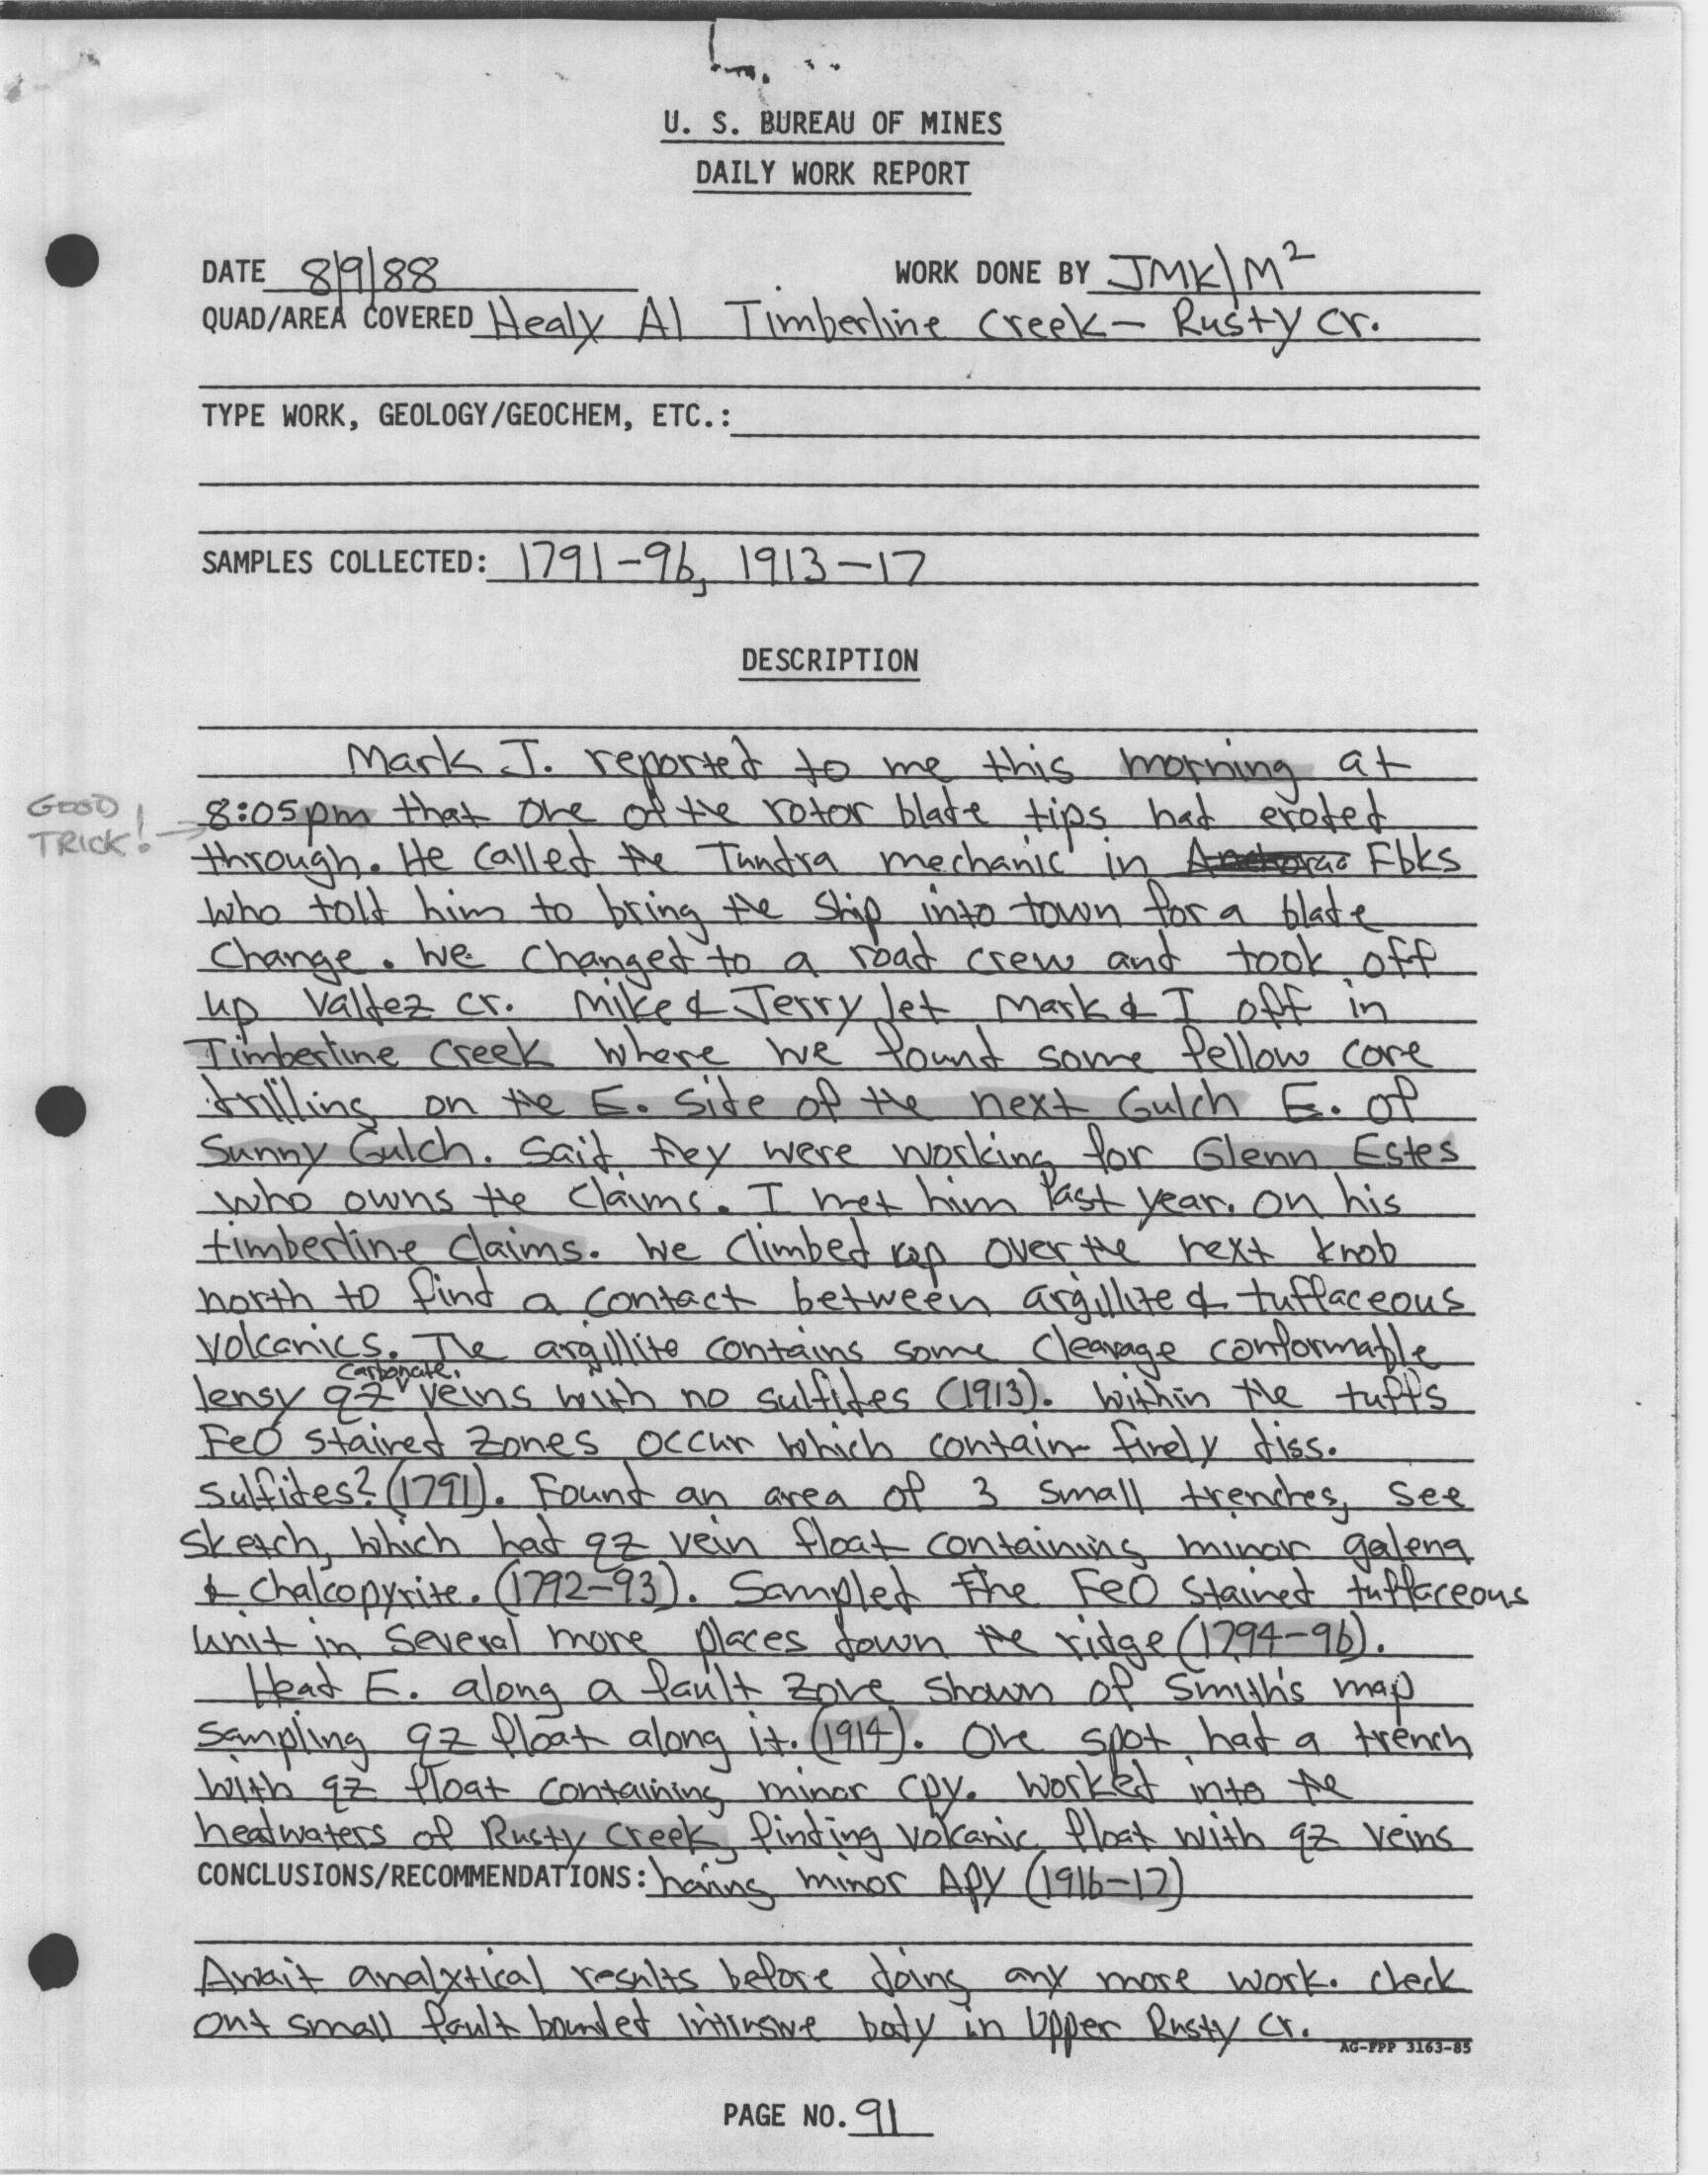 U. S. BUREAU OF MINES
DAILY WORK REPORT
DATE 8/9/88 WORK DONE BY JMK/M²
QUAD/AREA COVERED Healy A1 Timberline Creek - Rusty Cr.
TYPE WORK, GEOLOGY/GEOCHEM, ETC.:
SAMPLES COLLECTED: 1791-96, 1913-17
DESCRIPTION
Mark J. reported to me this morning at
GOOD TRICK! → 8:05pm that one of the rotor blade tips had eroded
through. He called the Tundra mechanic in Fbks
who told him to bring the ship into town for a blade
change. We changed to a road crew and took off
up Valdez Cr. Mike & Jerry let Mark & I off in
Timberline Creek where we found some fellow core
drilling on the E. side of the next Gulch E. of
Sunny Gulch. Said they were working for Glenn Estes
who owns the claims. I met him last year on his
timberline claims. We climbed up over the next knob
north to find a contact between argillite & tuffaceous
volcanics. The argillite contains some cleavage conformable
lensy qz carbonate veins with no sulfides (1913). Within the tuffs
FeO stained zones occur which contain finely diss.
sulfides? (1791). Found an area of 3 small trenches, see
sketch, which had qz vein float containing minor galena
& chalcopyrite. (1792-93). Sampled the FeO stained tuffaceous
unit in several more places down the ridge (1794-96).
Head E. along a fault zone shown of Smith's map
sampling qz float along it. (1914). One spot had a trench
with qz float containing minor cpy. Worked into the
headwaters of Rusty Creek, finding volcanic float with qz veins
CONCLUSIONS/RECOMMENDATIONS: having minor Apy (1916-17)
Await analytical results before doing any more work. Check
out small fault bounded intrusive body in Upper Rusty Cr.
AG-FPP 3163-85
PAGE NO. 91